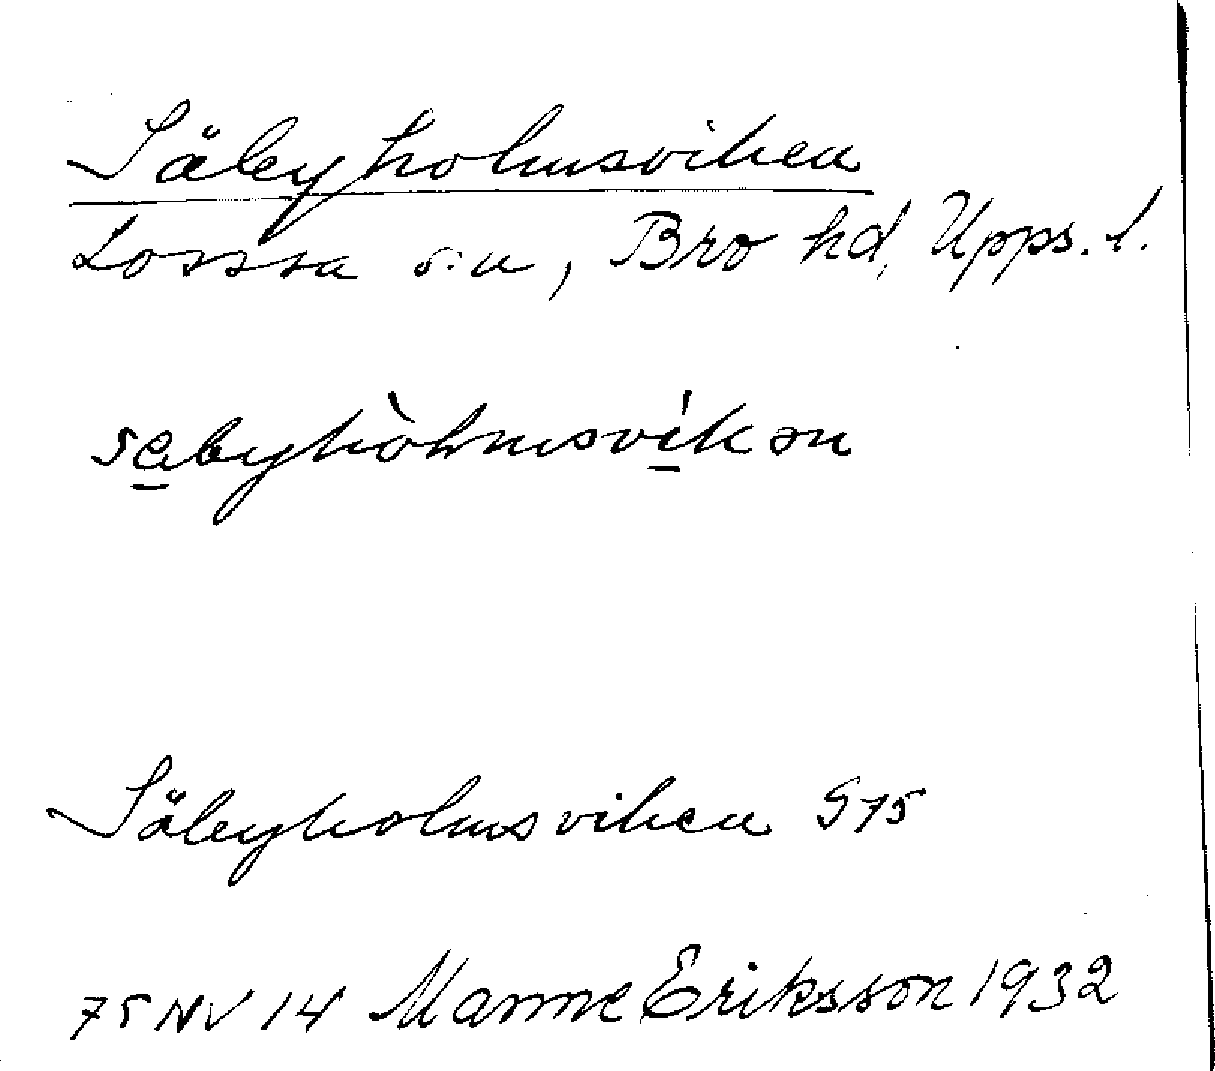 Säbyholmsviken
Lossa sn, Bro hd, Upps. l.
sa̱byhòlmsví̱kən
Säbyholmsviken S75
75 NV 14 Manne Eriksson 1932